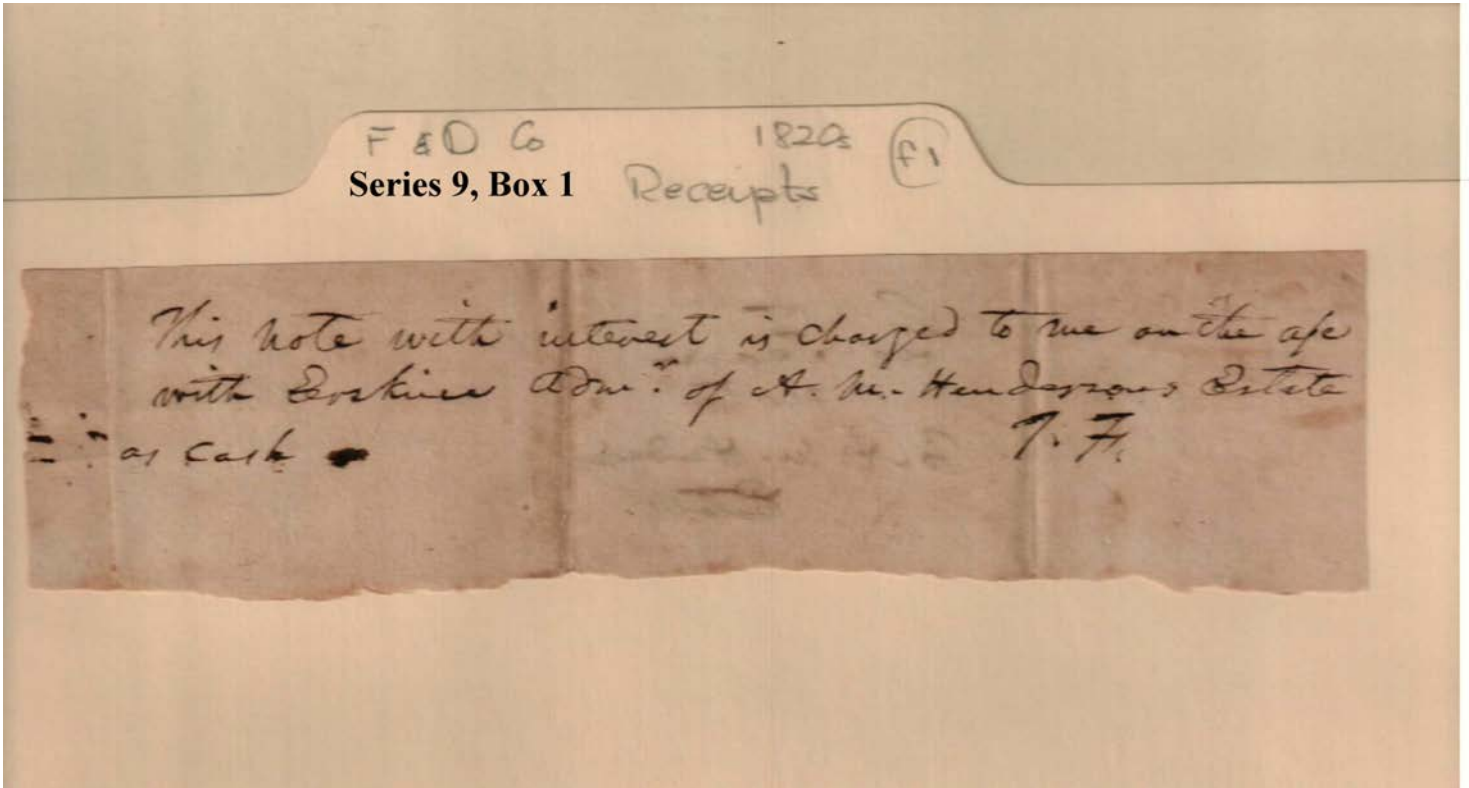 F & D Co 1820s f1
Series 9, Box 1 Receipts
This note with interest is charged to me on the a/c
with Erskine Admr. of A. M. Hendersons Estate
as Cash
T. F.